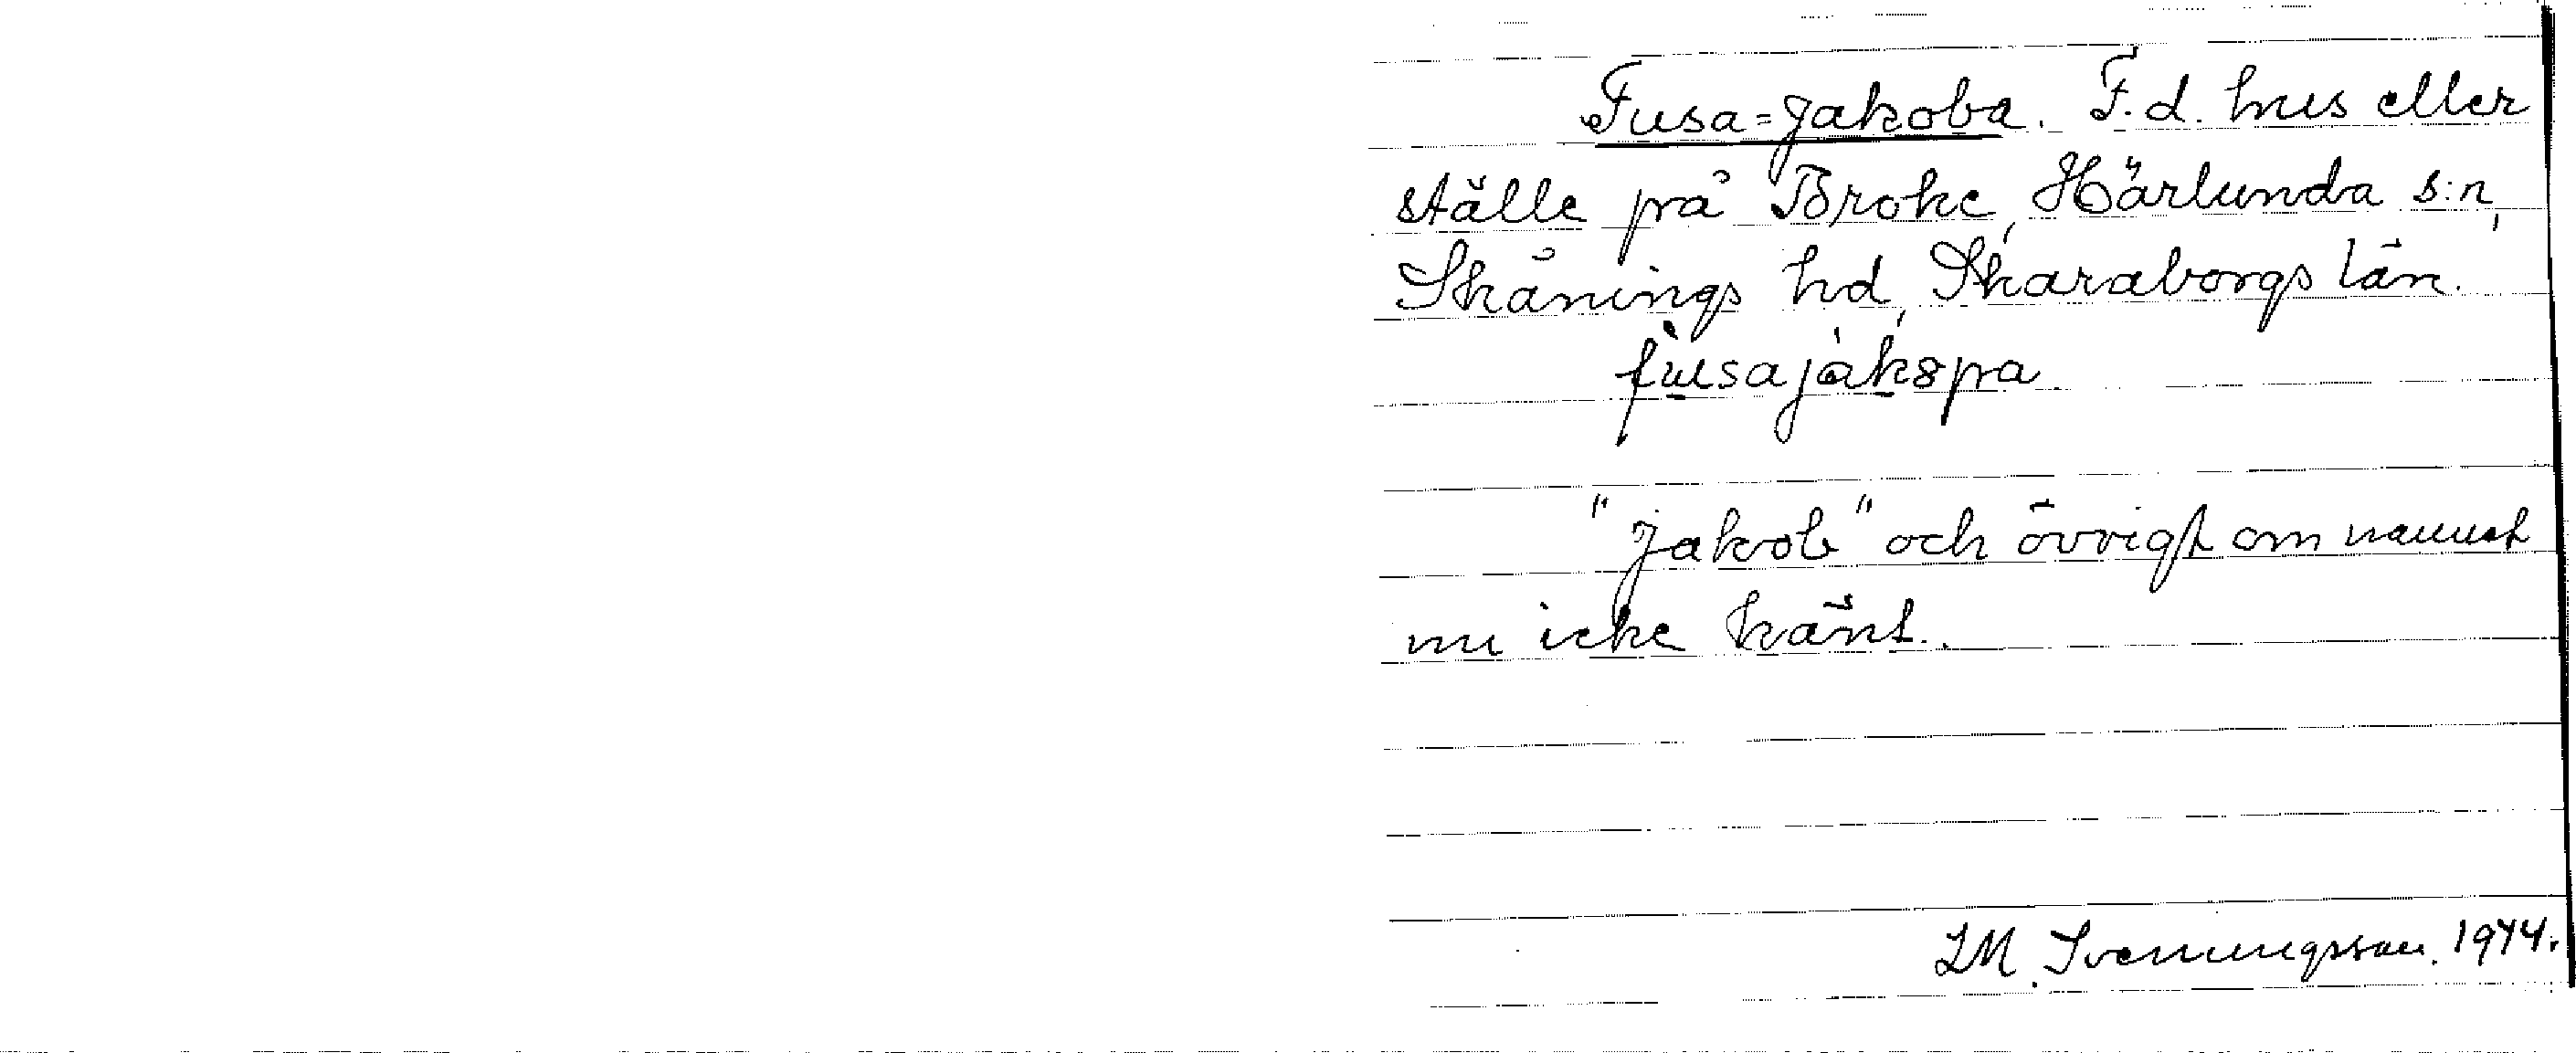 Fusa=Jakoba. F.d. hus eller
ställe på Broke, Härlunda s:n,
Skånings hd, Skaraborgs län.
"Jakob" och övrigt om namnet
nu icke känt.
LM Svenungsson. 1944.